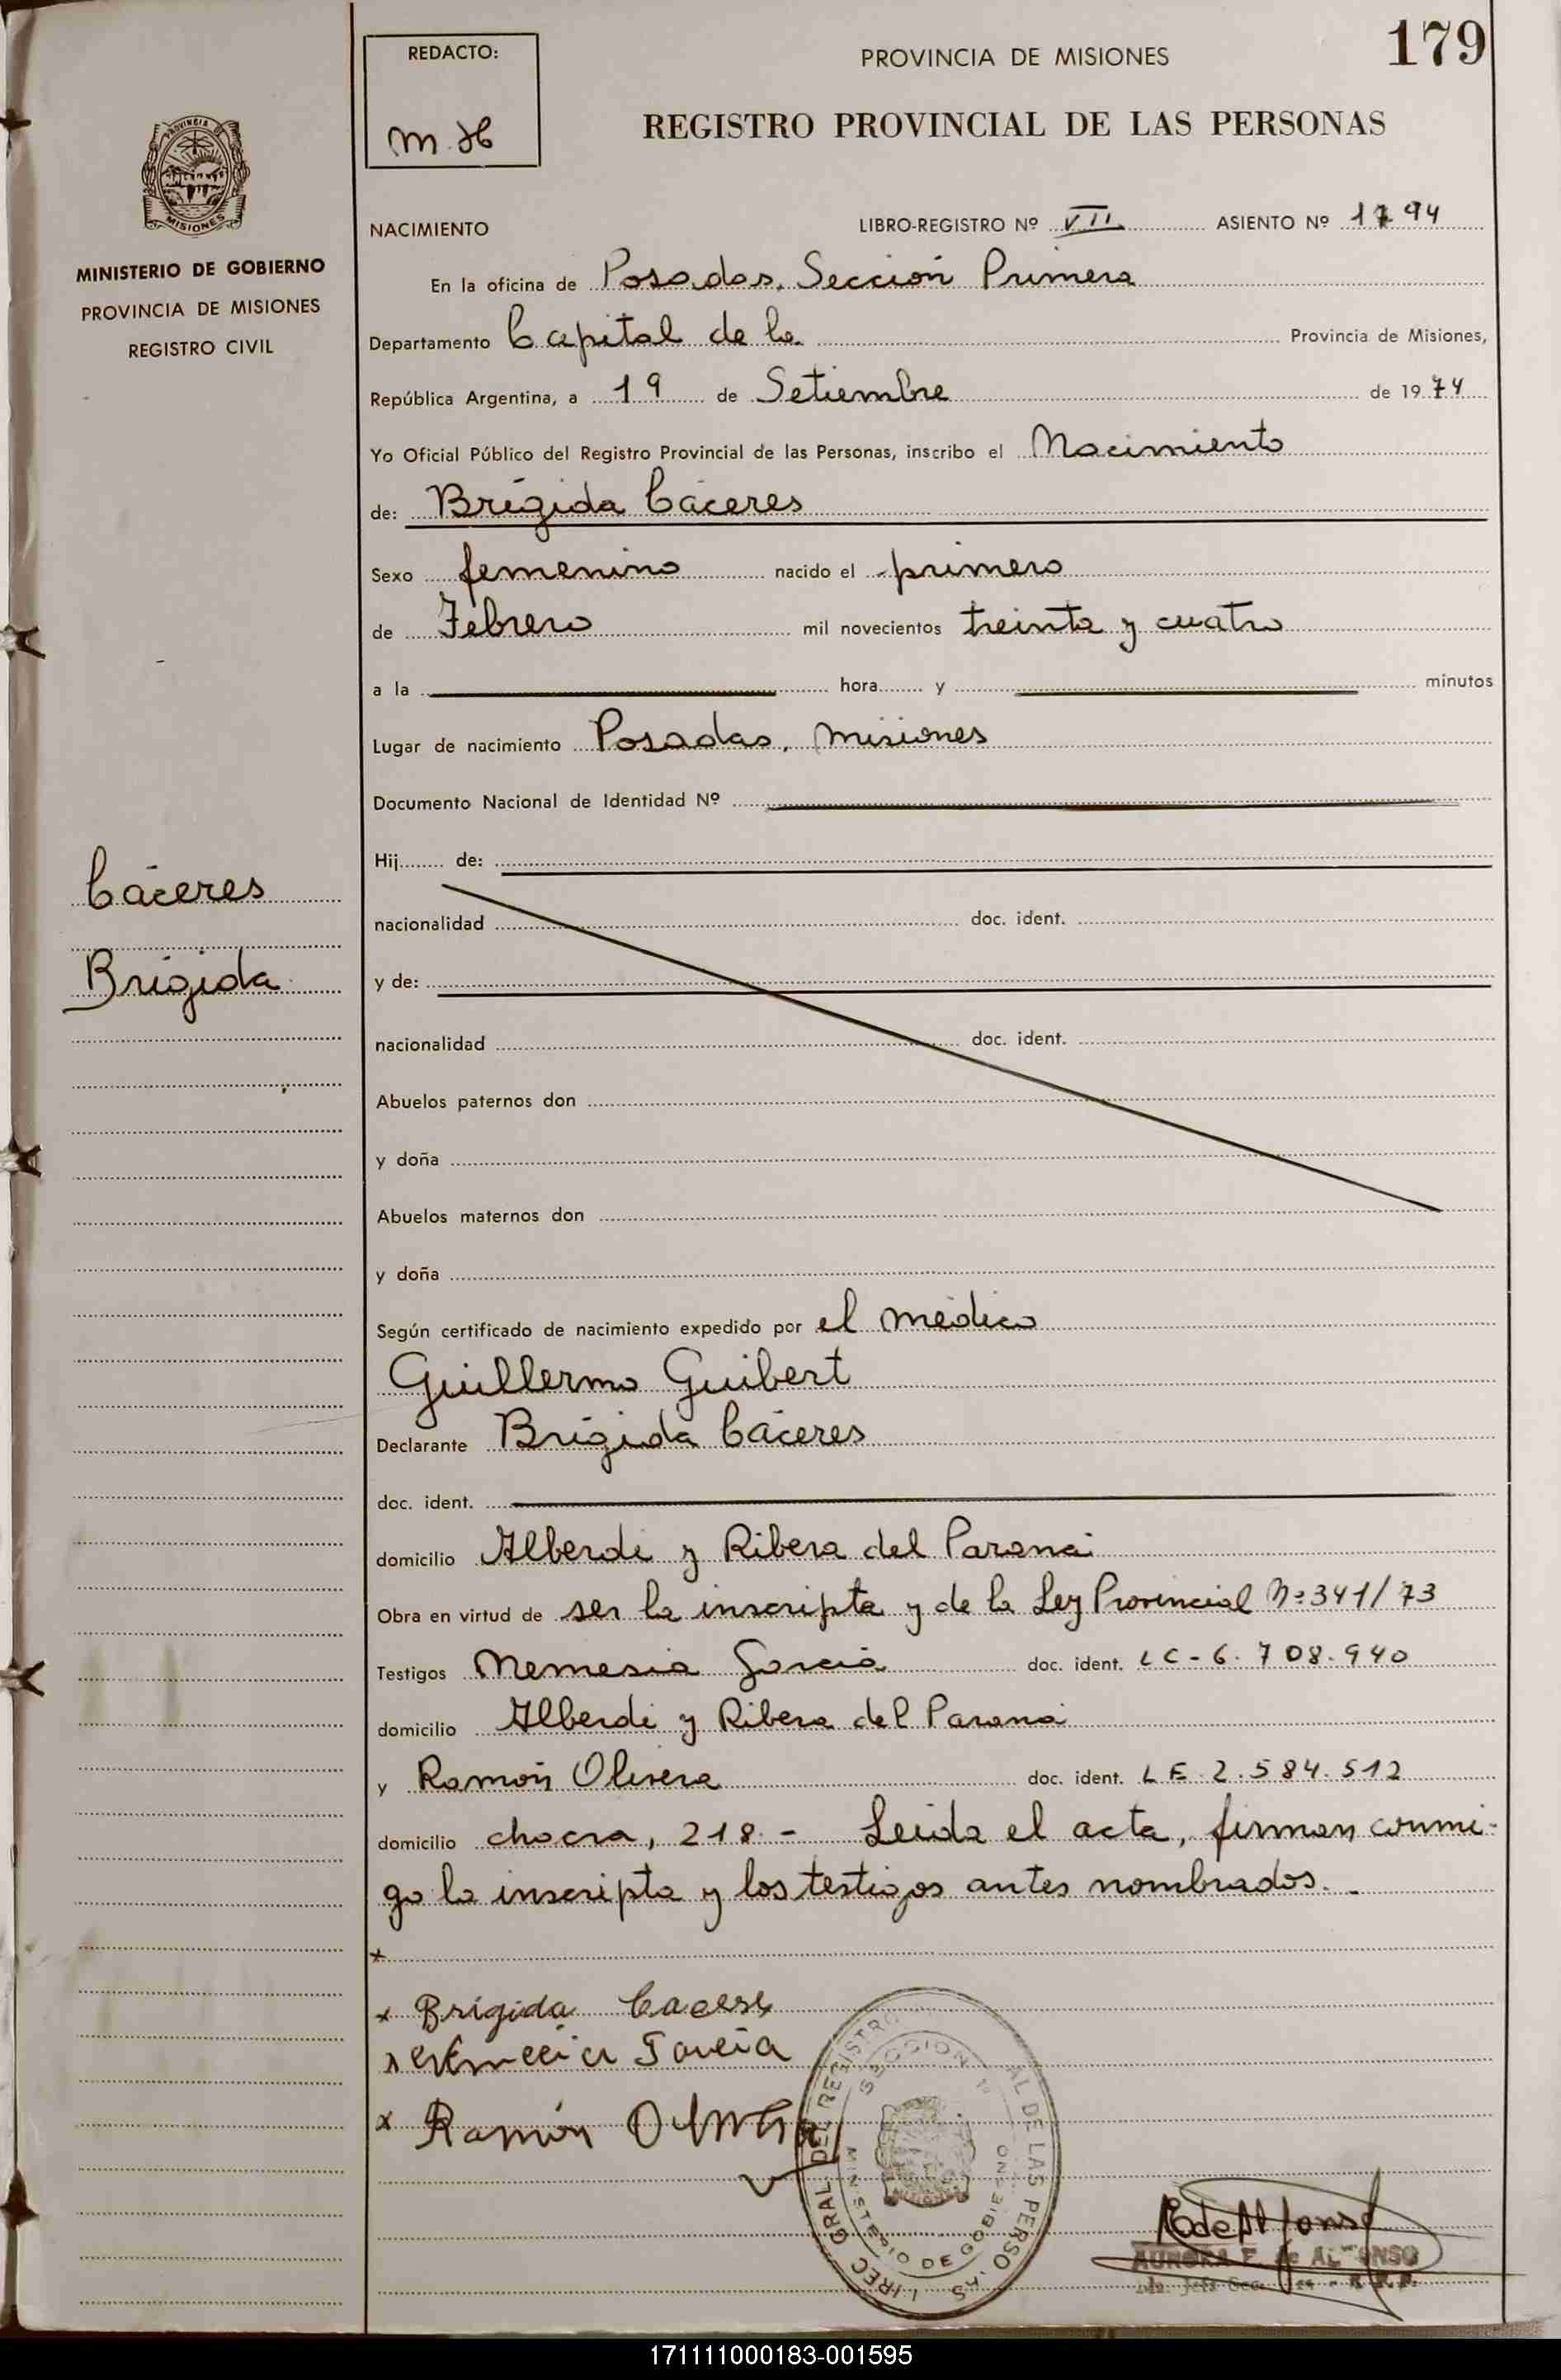 179
REDACTO:
M.H
PROVINCIA DE MISIONES
REGISTRO PROVINCIAL DE LAS PERSONAS
PROVINCIA DE
MISIONES
MINISTERIO DE GOBIERNO
PROVINCIA DE MISIONES
REGISTRO CIVIL
NACIMIENTO LIBRO-REGISTRO Nº VII ASIENTO Nº 1794
En la oficina de Posadas, Sección Primera
Departamento Capital de la Provincia de Misiones,
República Argentina, a 19 de Setiembre de 1974
Yo Oficial Público del Registro Provincial de las Personas, inscribo el Nacimiento
de: Brígida Cáceres
Sexo femenino nacido el primero
de Febrero mil novecientos treinta y cuatro
a la hora y minutos
Lugar de nacimiento Posadas, Misiones
Documento Nacional de Identidad Nº
Cáceres
Brígida
Hij de:
nacionalidad doc. ident.
y de:
nacionalidad doc. ident.
Abuelos paternos don
y doña
Abuelos maternos don
y doña
Según certificado de nacimiento expedido por el médico
Guillermo Guibert
Declarante Brígida Cáceres
doc. ident.
domicilio Alberdi y Ribera del Paraná
Obra en virtud de ser la inscripta y de la Ley Provincial Nº 341/73
Testigos Nemesia García doc. ident. LC-6.708.940
domicilio Alberdi y Ribera del Paraná
y Ramón Olivera doc. ident. LE 2.584.512
domicilio chacra, 218.- Leída el acta, firman conmi-
go la inscripta y los testigos antes nombrados.
x
x Brígida
García
x Ramón
DIREC. GRAL. DEL REGISTRO AL DE LAS PERSONAS
SECCION 1ª
MINISTERIO DE GOBIERNO
AURORA E. de ALFONSO
171111000183-001595